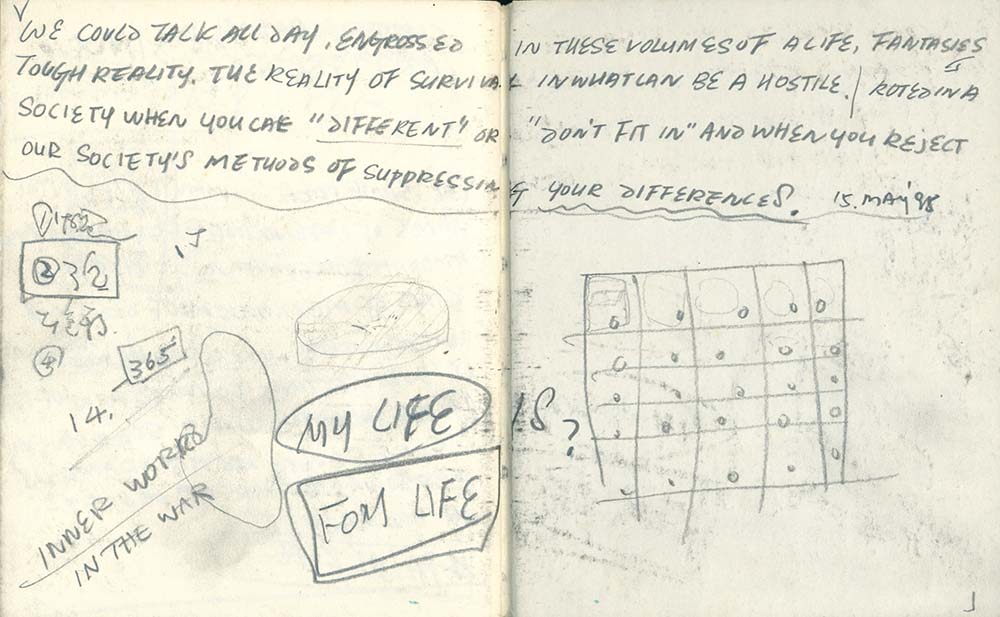 WE COULD TALK ALL DAY, ENGROSSED IN THESE VOLUMES OF A LIFE, FANTASIES
TOUGH REALITY. THE REALITY OF SURVIVAL IN WHAT CAN BE A HOSTILE. / ROTED IN A
SOCIETY WHEN YOU CAE "DIFFERENT" OR "DON'T FIT IN" AND WHEN YOU REJECT
OUR SOCIETY'S METHODS OF SUPPRESSING YOUR DIFFERENCES. 15. MAY '98
②
④
365
14.
INNER WORKS
IN THE WAR
MY LIFE IS ?
FOR LIFE